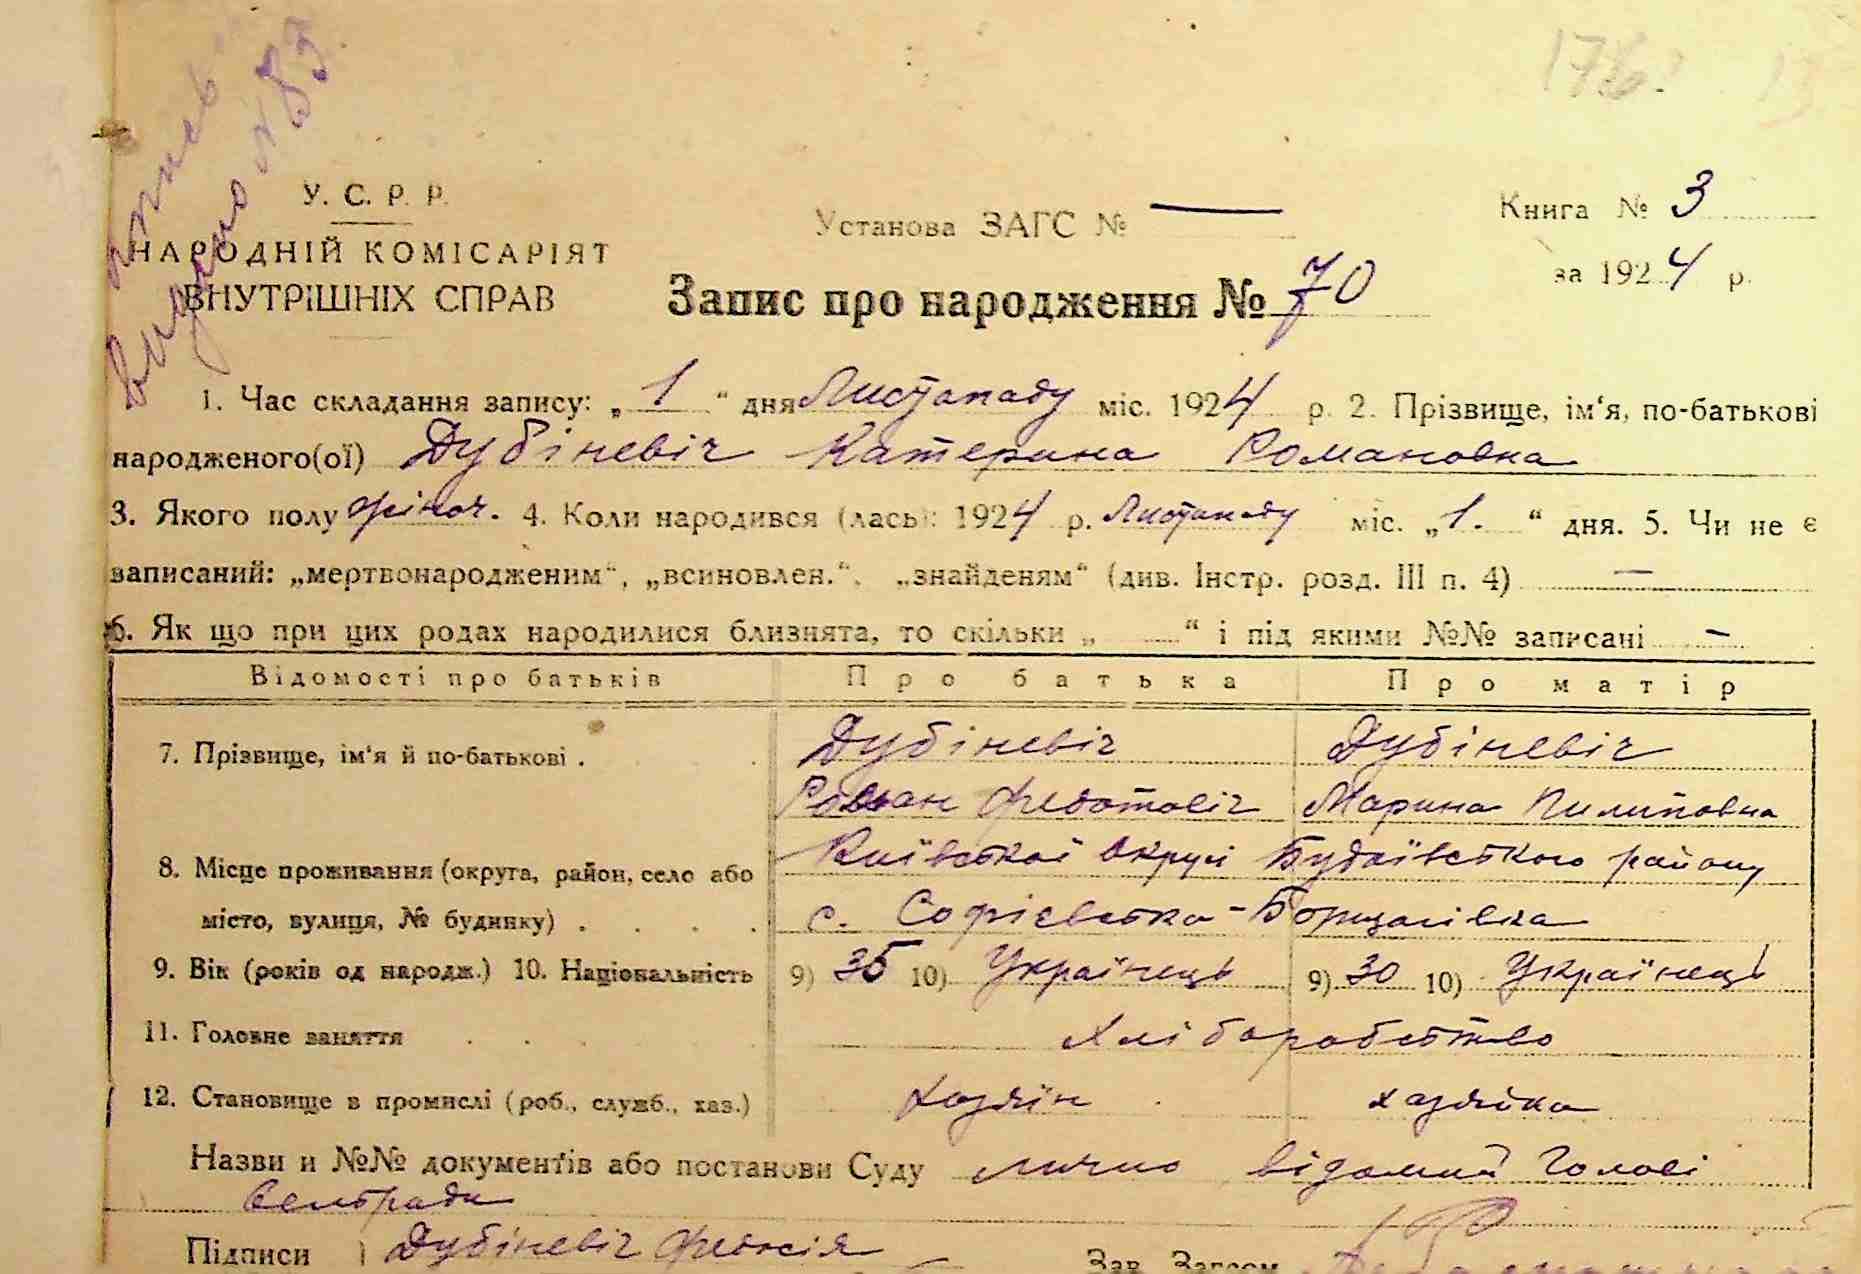 видано № 83
176.
У. С. Р. Р.
НАРОДНІЙ КОМІСАРІЯТ
ВНУТРІШНІХ СПРАВ
Установа ЗАГС № —
Книга № 3
за 1924 р.
Запис про народження № 70
1. Час складання запису: „1“ дня Листопаду міс. 1924 р. 2. Прізвище, ім‘я, по-батькові
народженого(ої) Дубіневіч Катерина Романовна
3. Якого полу жіноч. 4. Коли народився (лась): 1924 р. Листопаду міс. „1.“ дня. 5. Чи не є
записаний: „мертвонародженим“, „всиновлен.“, „знайденям“ (див. Інстр. розд. III п. 4) —
6. Як що при цих родах народилися близнята, то скільки „ “ і під якими №№ записані —
Відомості про батьків Про батька Про матір
7. Прізвище, ім‘я й по-батькові . Дубіневіч Дубіневіч
Роман Федотовіч Марина Пилиповна
8. Місце проживання (округа, район, село або Київської округі Будаївського району
місто, вулиця, № будинку) . . . . с. Софієвська-Борщагівка
9. Вік (років од народж.) 10. Національність 9) 35 10) Українець 9) 30 10) Українець
11. Головне заняття . . . . Хліборобство
12. Становище в промислі (роб., служб., хаз.) Хазяїн хазяйка
Назви и №№ документів або постанови Суду лично відомий Голові
Сельради
Підписи Дубіневіч
Зав. Загсом